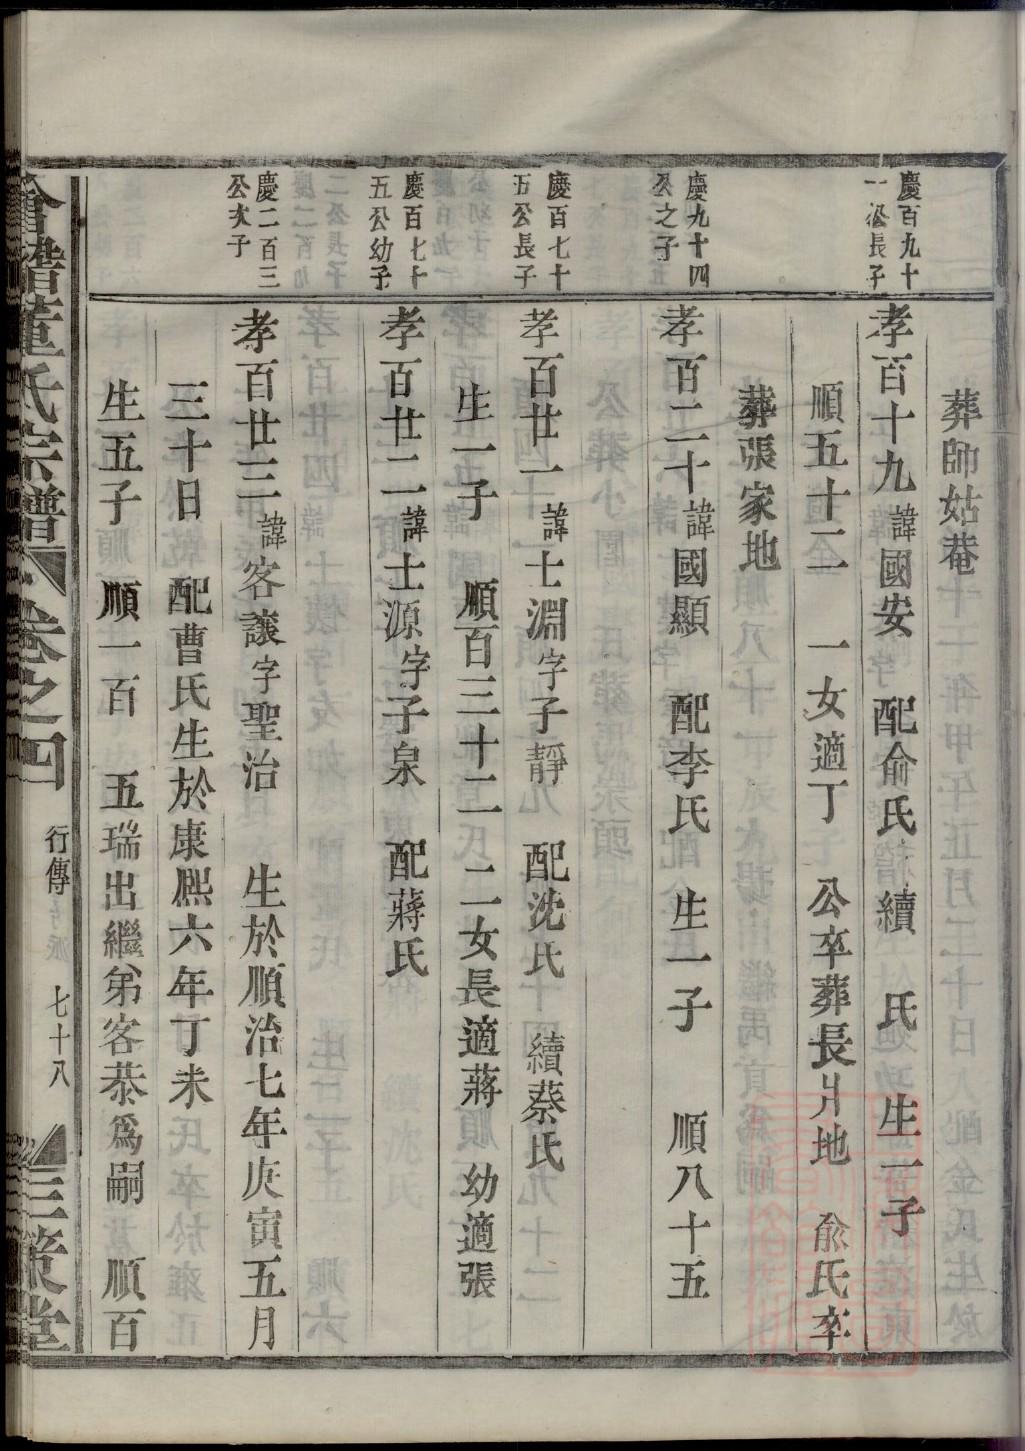 葬師姑菴
慶百九十一公長子
孝百十九諱國安　配俞氏　續　氏　生一子
順五十二　一女適丁　公卒葬長爿地　俞氏卒
葬張家地
慶九十四公之子
孝百二十諱國顯　配李氏　生一子　順八十五
慶百七十五公長子
孝百廿一諱士淵字子靜　配沈氏　續蔡氏
生一子　順百三十二　二女長適蔣　幼適張
慶百七十五公幼子
孝百廿二諱士源字子泉　配蔣氏
慶二百三公次子
孝百廿三諱客讓字聖治　生於順治七年庚寅五月
三十日　配曹氏生於康熙六年丁未
生五子　順一百　五瑞出繼弟客恭爲嗣　順百
會稽董氏宗譜　卷之四　行傳　七十八　三策堂